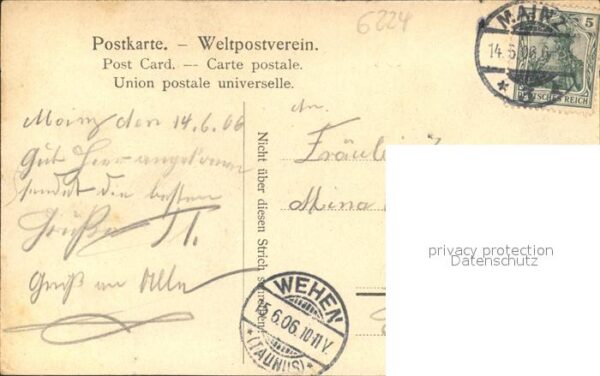 6224
Postkarte. – Weltpostverein.
Post Card. — Carte postale.
Union postale universelle.
MAINZ
14.6.06.
5
DEUTSCHES REICH
Mainz den 14.6.06
Gut hier angekommen
sendet die besten
Grüße
Gruß an Alle
Nicht über diesen Strich schreiben!
An
Fräulein
Mina
privacy protection
Datenschutz
WEHEN
15.6.06.10-11V.
*(TAUNUS)*